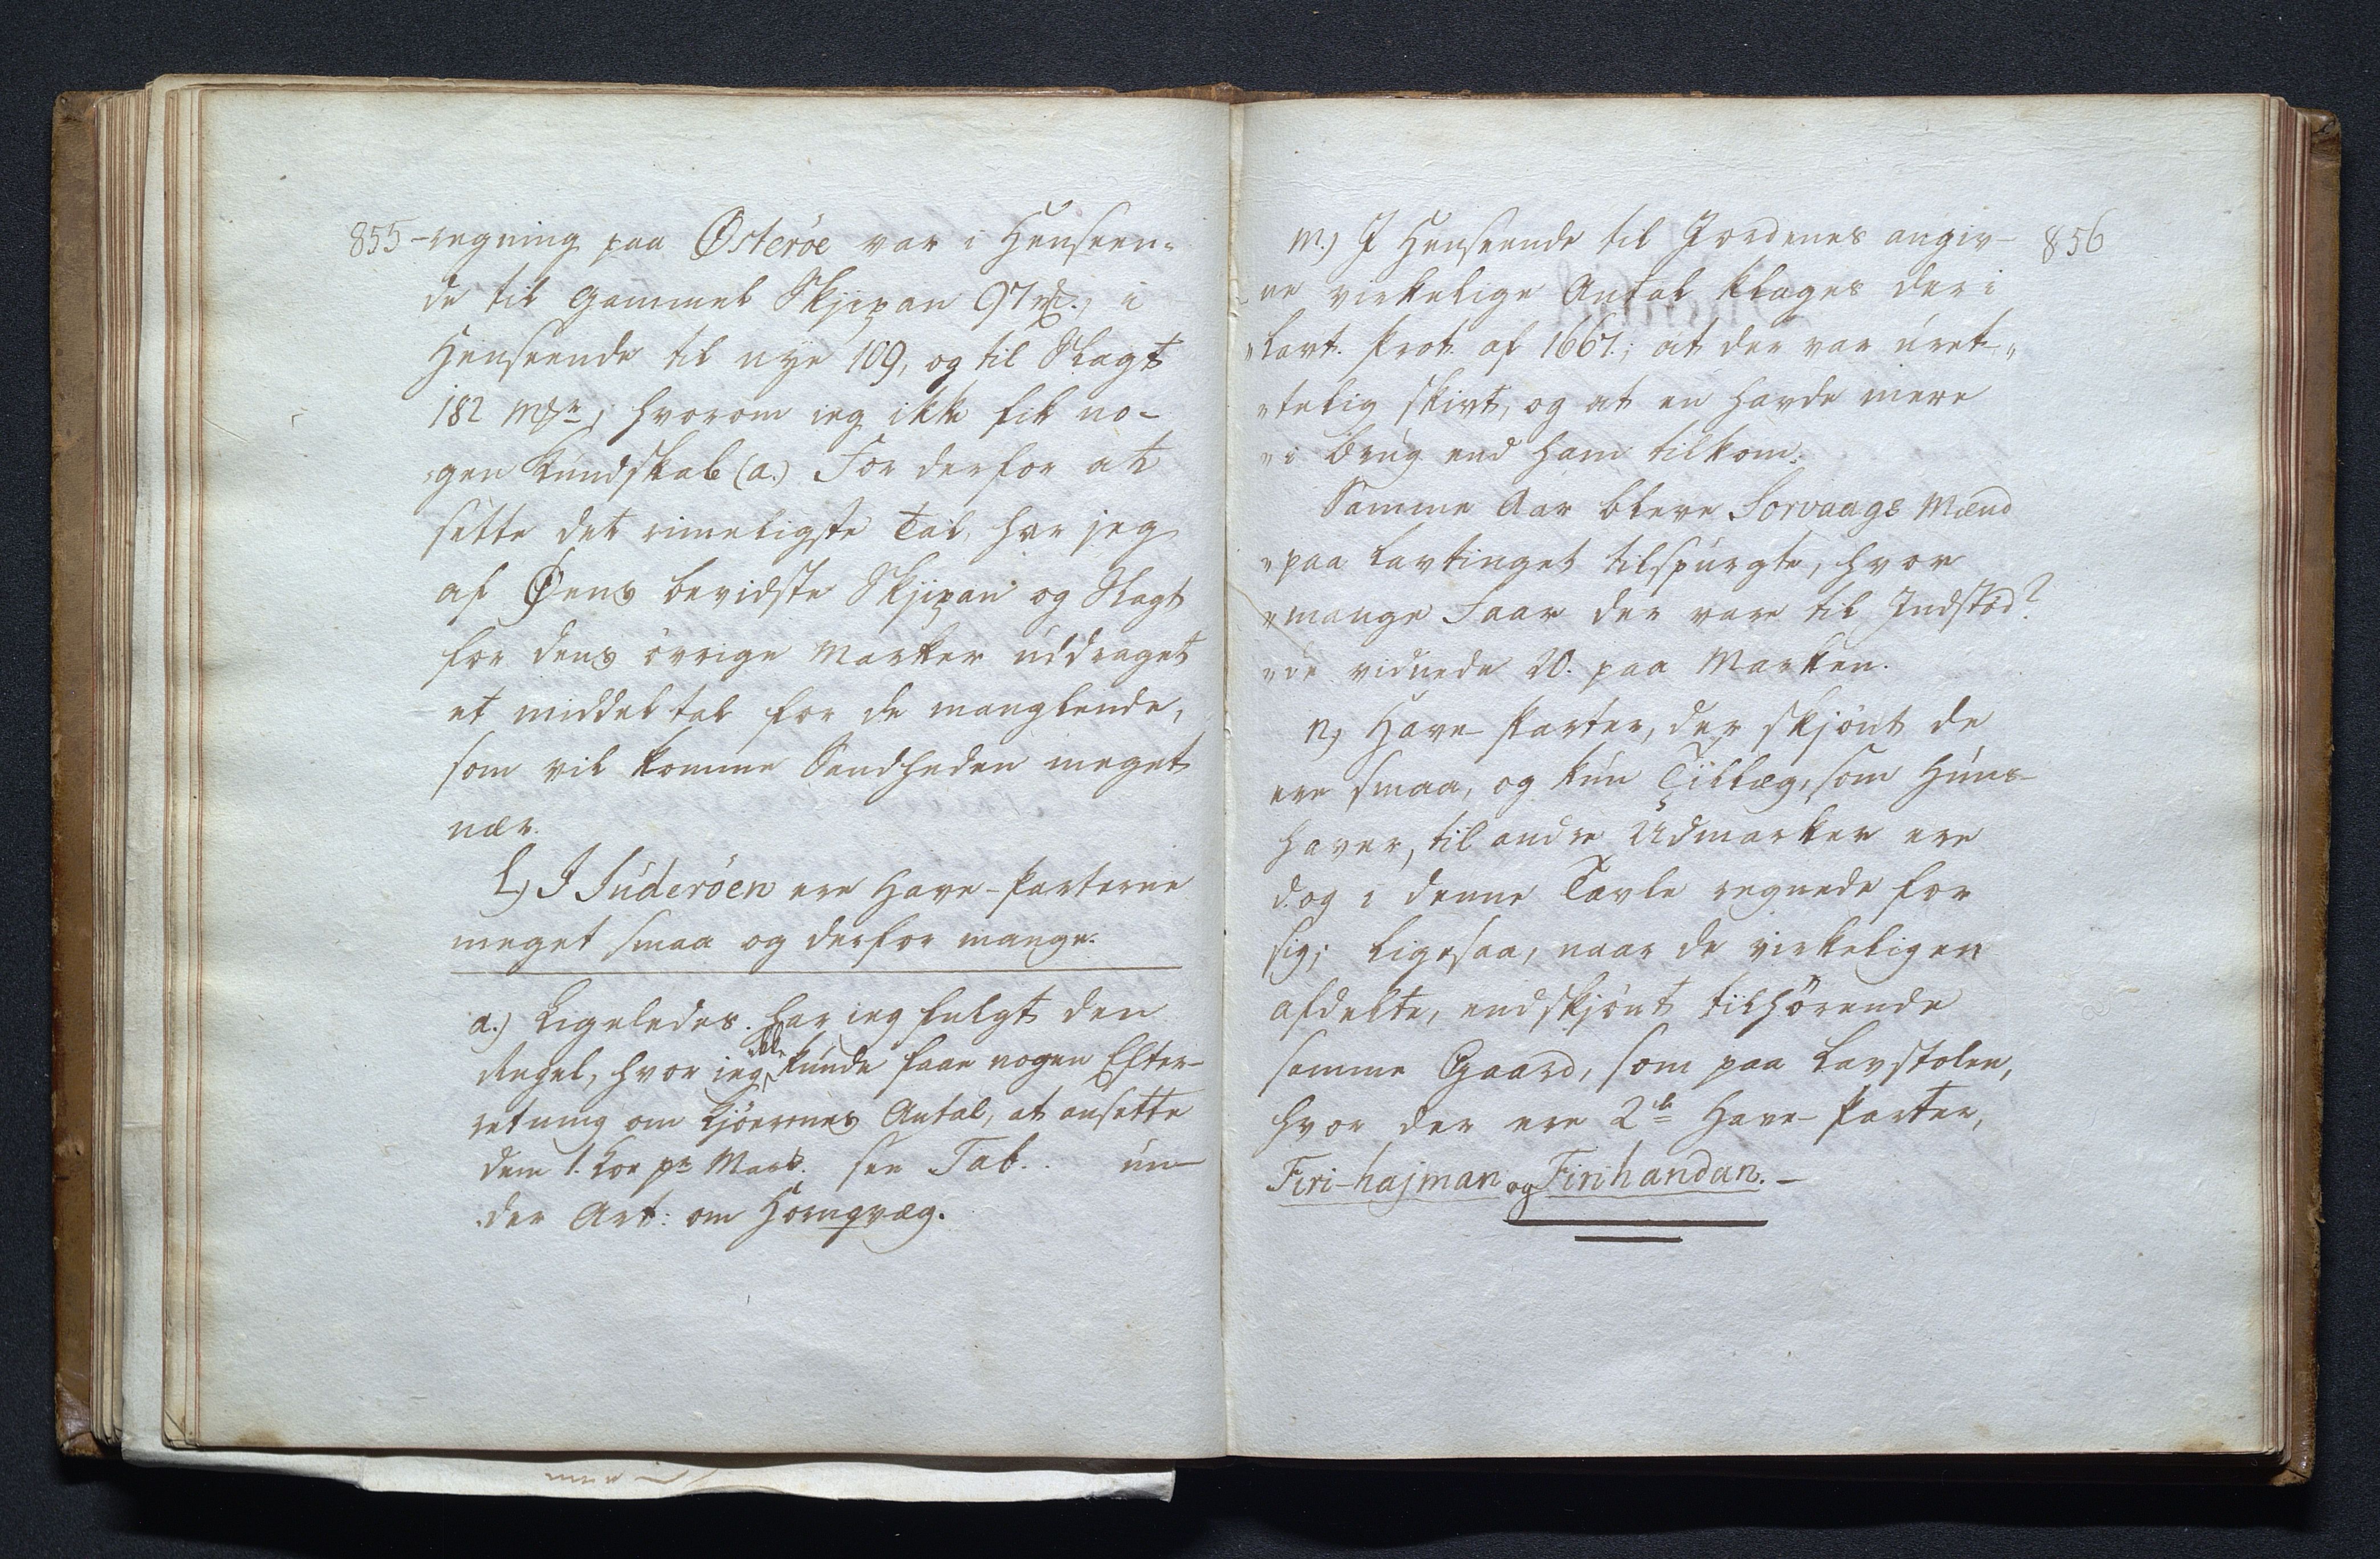 855 -regning paa Østeröe var i Henseen-
de til gammel Skjipan 97 , i
Henseende til nye 109, og til Slagt
182 mkr, hvorom ieg ikke fik no-
gen Kundskab (a.) For derfor at
sette det rimeligste Tal, har jeg
af Øens bevidste Skjipan og Slagt
for dens övrige Marker uddraget
et middeltal for de manglende,
som vil komme Sandheden meget
nær.
L) I Suderöen ere Have-Parterne
meget smaa og derfor mange.
a.) Ligeledes har ieg fulgt den
Regel, hvor ieg ikke kunde faae nogen Efter-
retning om Kjöernes Antal, at ansette
dem 1. Koe pr Mark. see Tab. . un-
der Art: om Hornqvæg.
856
m.) I Henseende til Jordenes angiv-
ne virkelige Antal klages der i
"Lavt. Prot. af 1667.; at der var uret-"
"telig skivt, og at en havde mere
"i Brug end ham tilkom.
Samme Aar bleve Sorvaags Mænd
"paa Lavtinget tilspurgte, hvor
"mange Faar der vare til Indstöd?
"de vidnede 20. paa Marken.
n) Have-Parter, der skjönt de
ere smaa, og kun Tillæg, som Huus-
haver, til andre Udmarker ere
dog i denne Tavle regnede for
sig; ligesaa, naar de virkeligen
afdelte, endskjönt tilhörende
samme Gaard, som paa Lavstolen,
hvor der ere 2de Have-Parter,
Firi-hajman og Firihandan.-